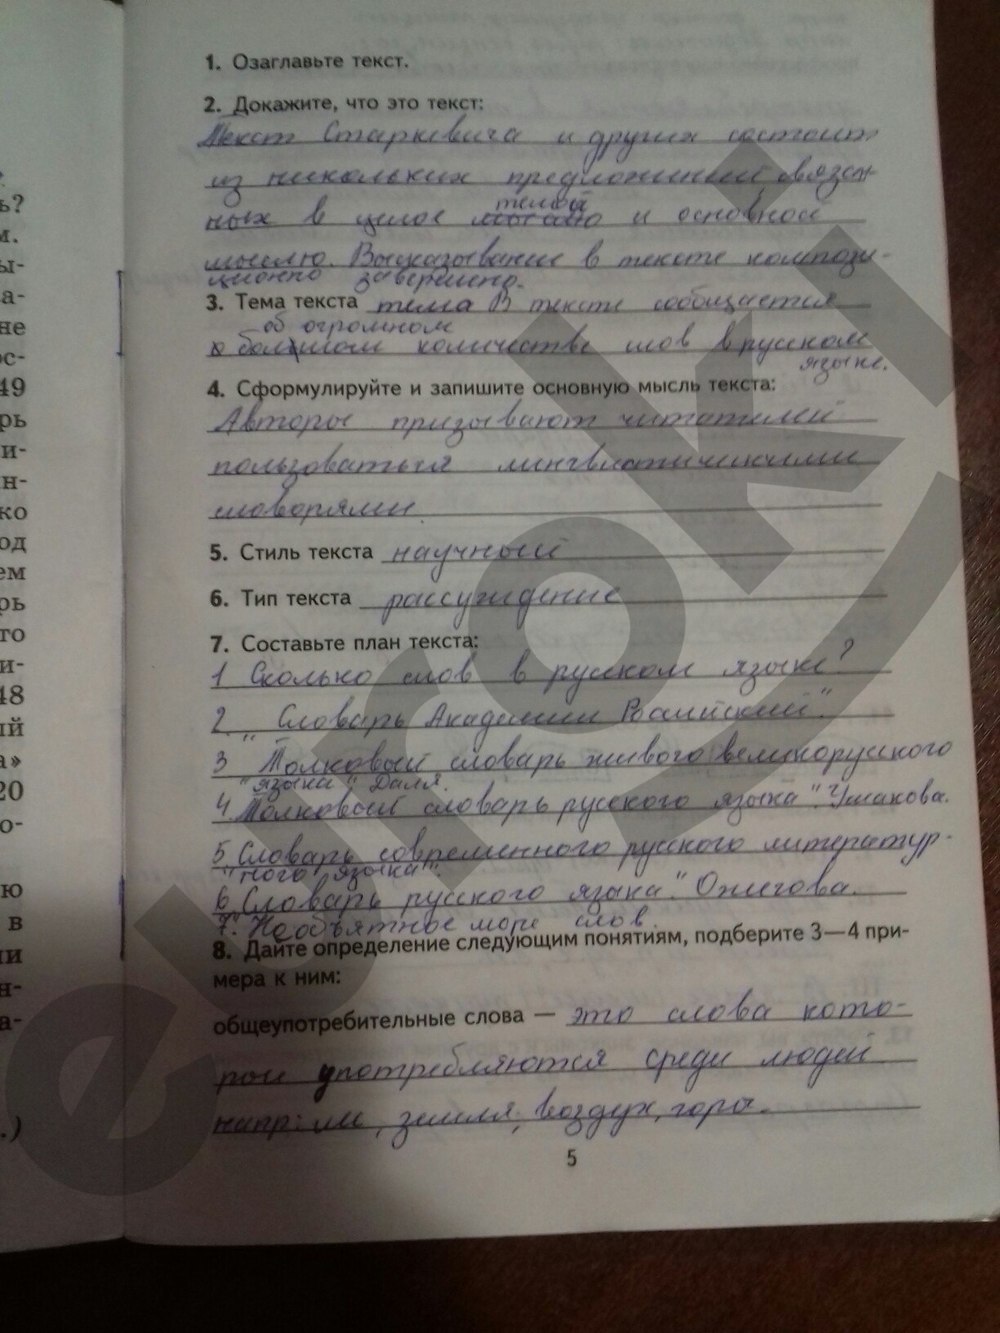 1. Озаглавьте текст.
2. Докажите, что это текст:
Текст Старкевича и других состоит
из нескольких предложений, связан-
ных в целое темой и основной
мыслю. Высказывание в тексте компози-
ционно завершено.
3. Тема текста тема В тексте сообщается
об огромном
количестве слов в русском
языке.
4. Сформулируйте и запишите основную мысль текста:
Авторы призывают читателей
пользоваться лингвистическими
словарями.
5. Стиль текста научный
6. Тип текста рассуждение
7. Составьте план текста:
1 Сколько слов в русском языке?
2. "Словарь Академии Российский".
3 "Толковый словарь живого великорусского
языка" Даля.
4. "Толковый словарь русского языка". Ушакова.
5. Словарь современного русского литератур-
ного языка".
6. "Словарь русского языка". Ожегова.
7. Необъятное море слов.
8. Дайте определение следующим понятиям, подберите 3—4 при-
мера к ним:
общеупотребительные слова — это слова кото-
рые употребляются среди людей
напр: лес, земля, воздух, гора.
5
ь?
м.
ы-
а-
не
ос-
49
рь
и-
н-
ко
од
ем
рь
го
и-
48
ый
а»
20
о-
ю
в
ли
н-
а-
.)
euroki